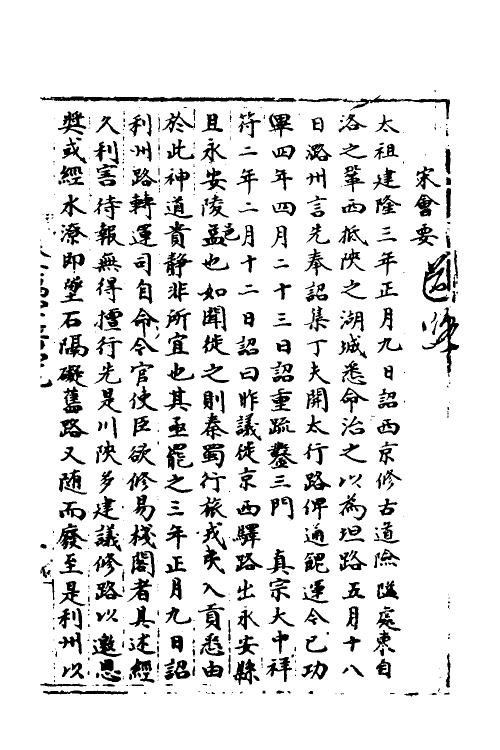 宋會要
道路
太祖建隆三年正月九日詔西京修古道險隘處東自
洛之鞏西抵陝之湖城悉命治之以為坦路五月十八
日潞州言先奉詔集丁夫開太行路俾通餽運令已功
畢四年四月二十三日詔重疏鑿三門 真宗大中祥
符二年二月十二日詔曰昨議徙京西驛路出永安縣
且永安陵邑也如聞徙之則秦蜀行旅戎夷入貢悉由
於此神道貴靜非所宜也其亟罷之三年正月九日詔
利州路轉運司自命令官使臣欲修易棧閣者具述經
久利害待報無得擅行先是川陝多建議修路以邀恩
獎或經水潦即墜石隔礙舊路又随而廢至是利州以